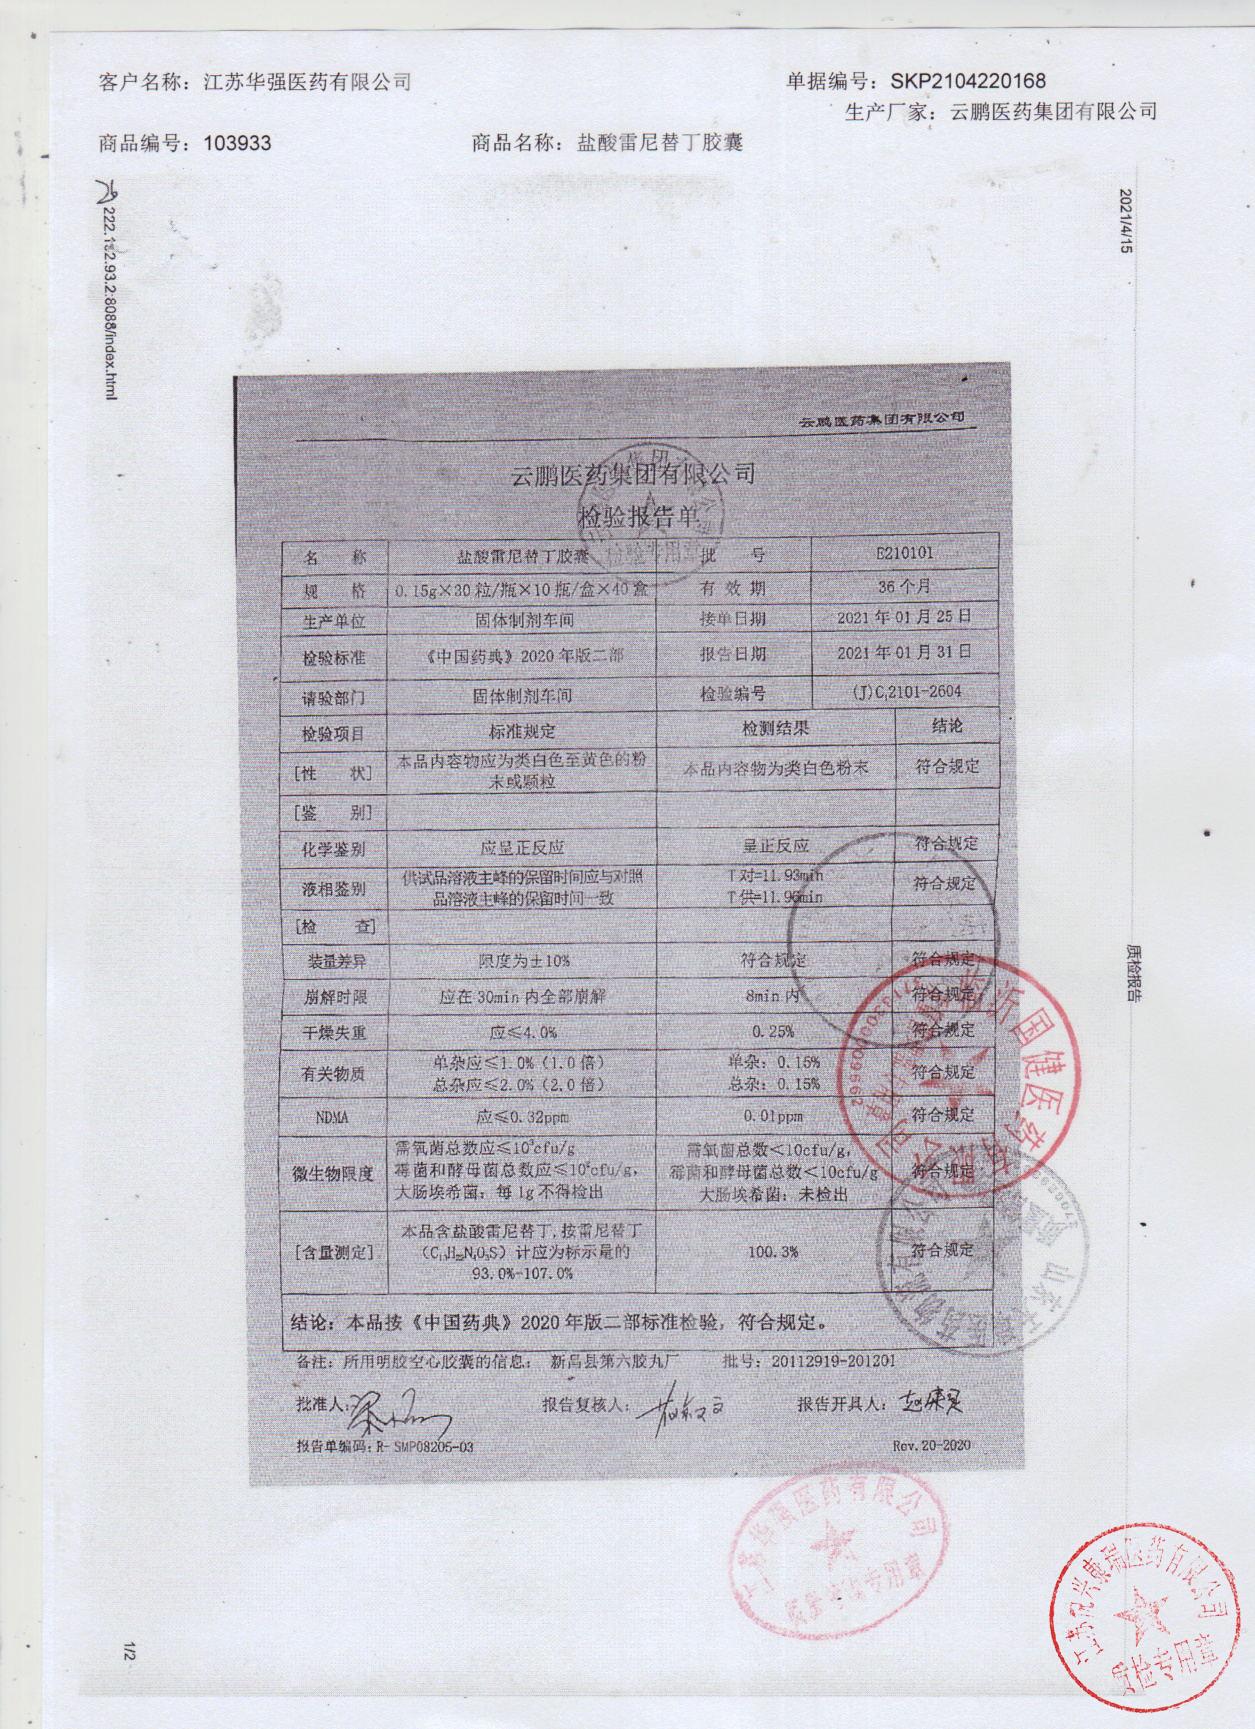 客户名称：江苏华强医药有限公司
单据编号：SKP2104220168
生产厂家：云鹏医药集团有限公司
商品编号：103933
商品名称：盐酸雷尼替丁胶囊
2021/4/15
质检报告
1/2
云鹏医药集团有限公司
云鹏医药集团有限公司
检验报告单
名 称 盐酸雷尼替丁胶囊 批 号 E210101
规 格 0.15g×30粒/瓶×10瓶/盒×40盒 有 效 期 36个月
生产单位 固体制剂车间 接单日期 2021年01月25日
检验标准 《中国药典》2020年版二部 报告日期 2021年01月31日
请验部门 固体制剂车间 检验编号 (J)C₁2101-2604
检验项目 标准规定 检测结果 结论
[性 状] 本品内容物应为类白色至黄色的粉末或颗粒 本品内容物为类白色粉末 符合规定
[鉴 别]
化学鉴别 应呈正反应 呈正反应 符合规定
液相鉴别 供试品溶液主峰的保留时间应与对照品溶液主峰的保留时间一致 T对=11.93min T供=11.96min 符合规定
[检 查]
装量差异 限度为±10% 符合规定 符合规定
崩解时限 应在30min内全部崩解 8min内 符合规定
干燥失重 应≤4.0% 0.25% 符合规定
有关物质 单杂应≤1.0%（1.0倍） 单杂：0.15% 符合规定
总杂应≤2.0%（2.0倍） 总杂：0.15%
NDMA 应≤0.32ppm 0.01ppm 符合规定
微生物限度 需氧菌总数应≤10³cfu/g 需氧菌总数<10cfu/g， 符合规定
霉菌和酵母菌总数应≤10²cfu/g， 霉菌和酵母菌总数<10cfu/g
大肠埃希菌：每1g不得检出 大肠埃希菌：未检出
[含量测定] 本品含盐酸雷尼替丁，按雷尼替丁 100.3% 符合规定
（C₁₃H₂₂N₄O₃S）计应为标示量的
93.0%-107.0%
结论：本品按《中国药典》2020年版二部标准检验，符合规定。
备注：所用明胶空心胶囊的信息： 新昌县第六胶丸厂 批号：20112919-201201
批准人： 报告复核人： 报告开具人：
报告单编码：R-SMP08205-03 Rev.20-2020
江苏华强医药有限公司
质量管理专用章
医药有限公司
质检专用章